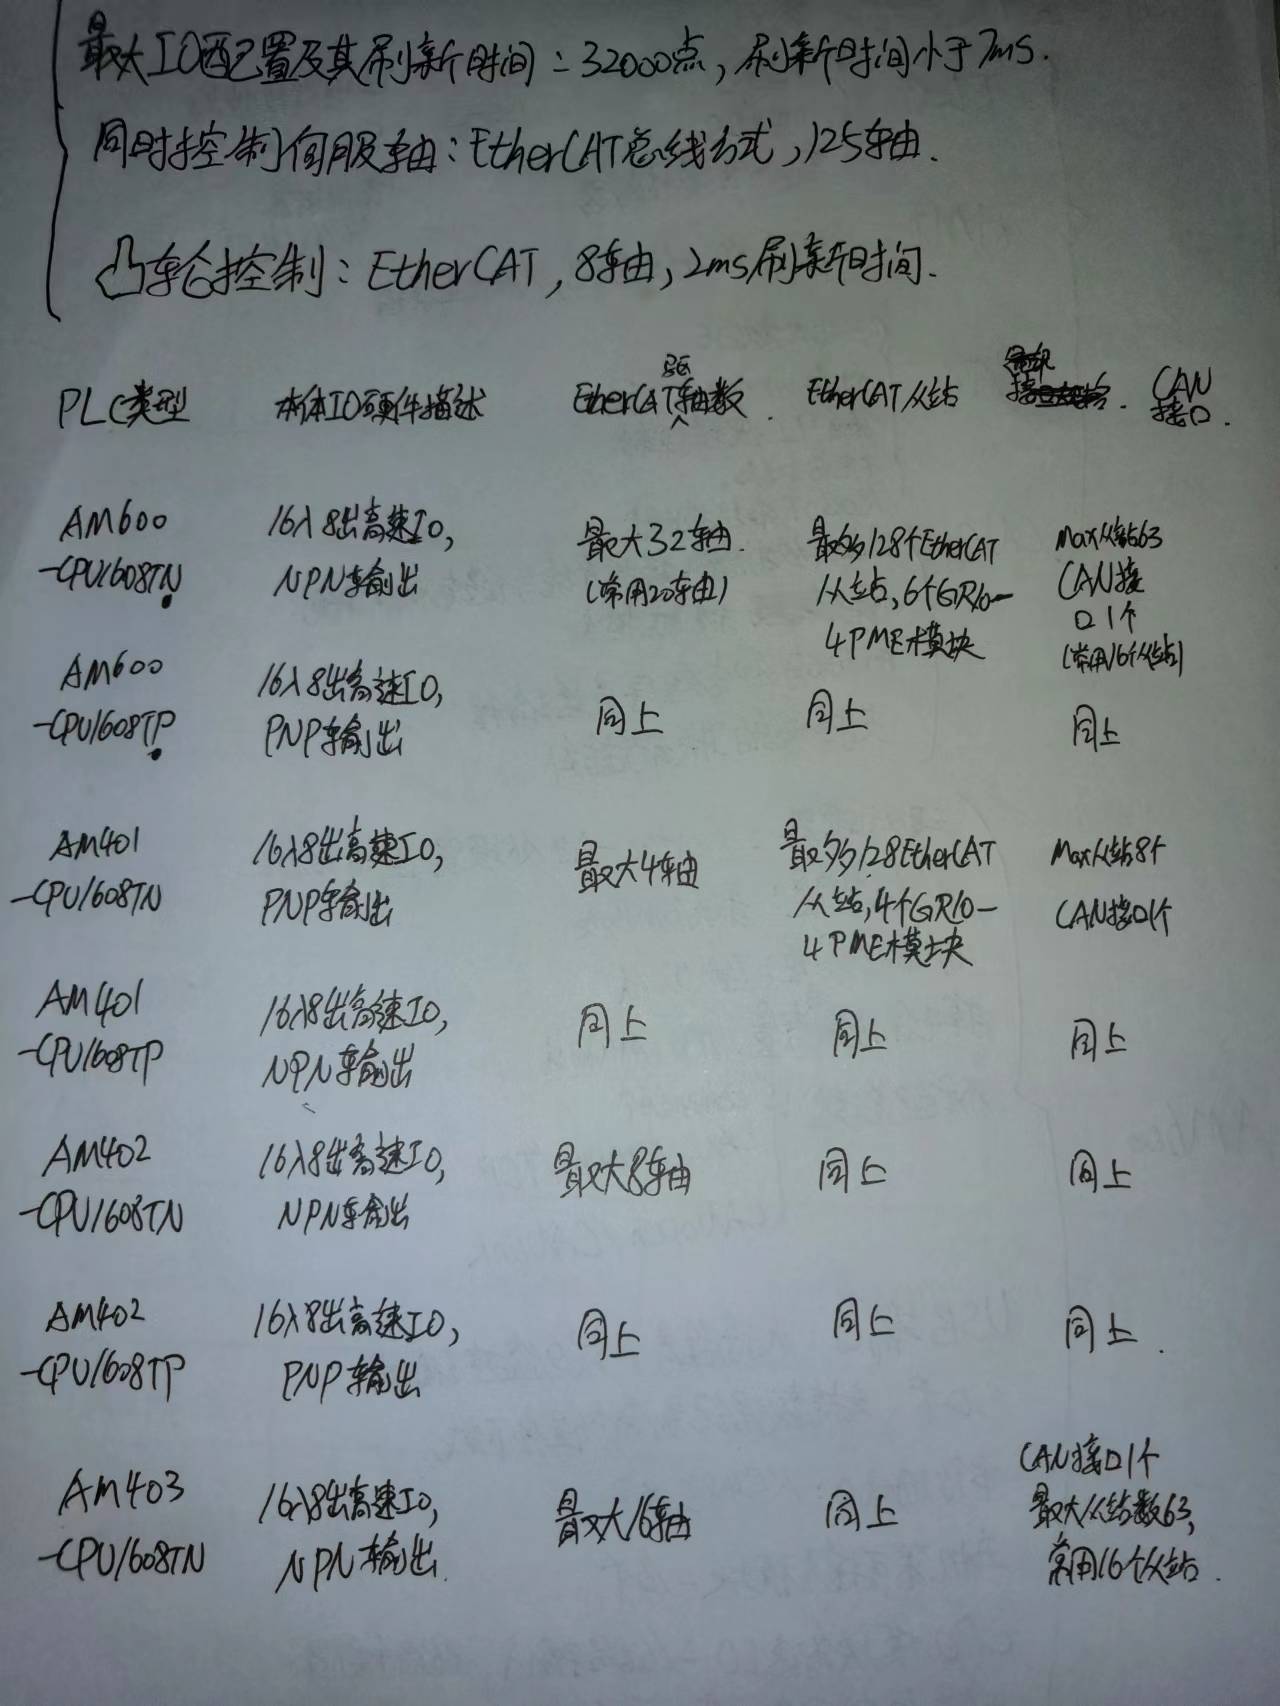 最大IO配置及其刷新时间:32000点,刷新时间小于7ms.
同时控制伺服轴:EtherCAT总线方式,125轴.
凸轮控制:EtherCAT,8轴,2ms刷新时间.
PLC类型 本体IO硬件描述 EtherCAT轴数. EtherCAT从站 CAN
接口.
AM600 16入8出高速IO, 最大32轴. 最多128个EtherCAT Max从站63
-CPU1608TN NPN输出 (常用20轴) 从站,6个GR10- CAN接
4PME模块 口1个
(常用16个从站)
AM600 16入8出高速IO,
-CPU1608TP PNP输出 同上 同上 同上
AM401 16入8出高速IO, 最大4轴 最多128EtherCAT Max从站8个
-CPU1608TN PNP输出 从站,4个GR10- CAN接口1个
4PME模块
AM401 16入8出高速IO, 同上 同上 同上
-CPU1608TP NPN输出
AM402 16入8出高速IO, 最大8轴 同上 同上
-CPU1608TN NPN输出
AM402 16入8出高速IO, 同上 同上 同上.
-CPU1608TP PNP输出
CAN接口1个
AM403 16入8出高速IO, 最大16轴 同上 最大从站数63,
-CPU1608TN NPN输出. 常用16个从站.